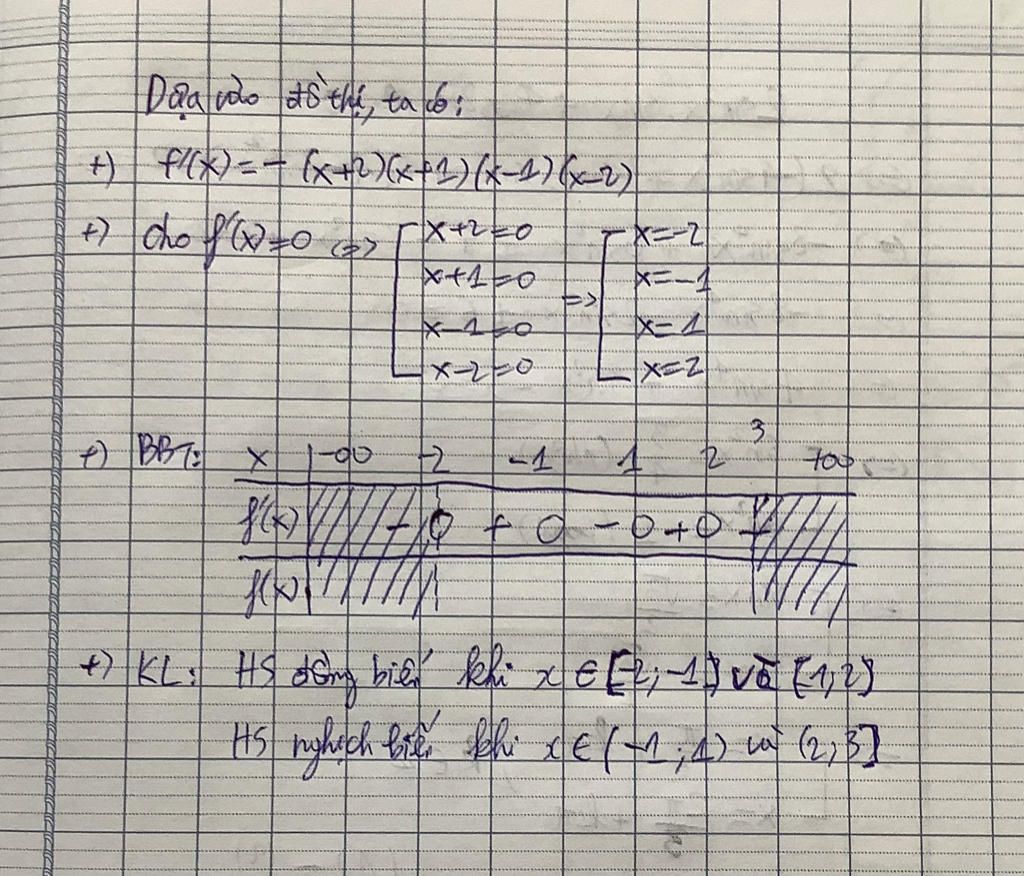 Dựa vào đồ thị, ta có:
+) f'(x) = - (x+2)(x+1)(x-1)(x-2)
+) cho f'(x)=0 <=> [ x+2=0 => [ x=-2
x+1=0 x=-1
x-1=0 x=1
x-2=0 x=2
+) BBT: x -∞ -2 -1 1 2 3 +∞
f'(x) - 0 + 0 - 0 + 0 -
f(x)
+) KL: HS đồng biến khi x ∈ [-2; -1] và [1;2]
HS nghịch biến khi x ∈ (-1; 1) và (2; 3]